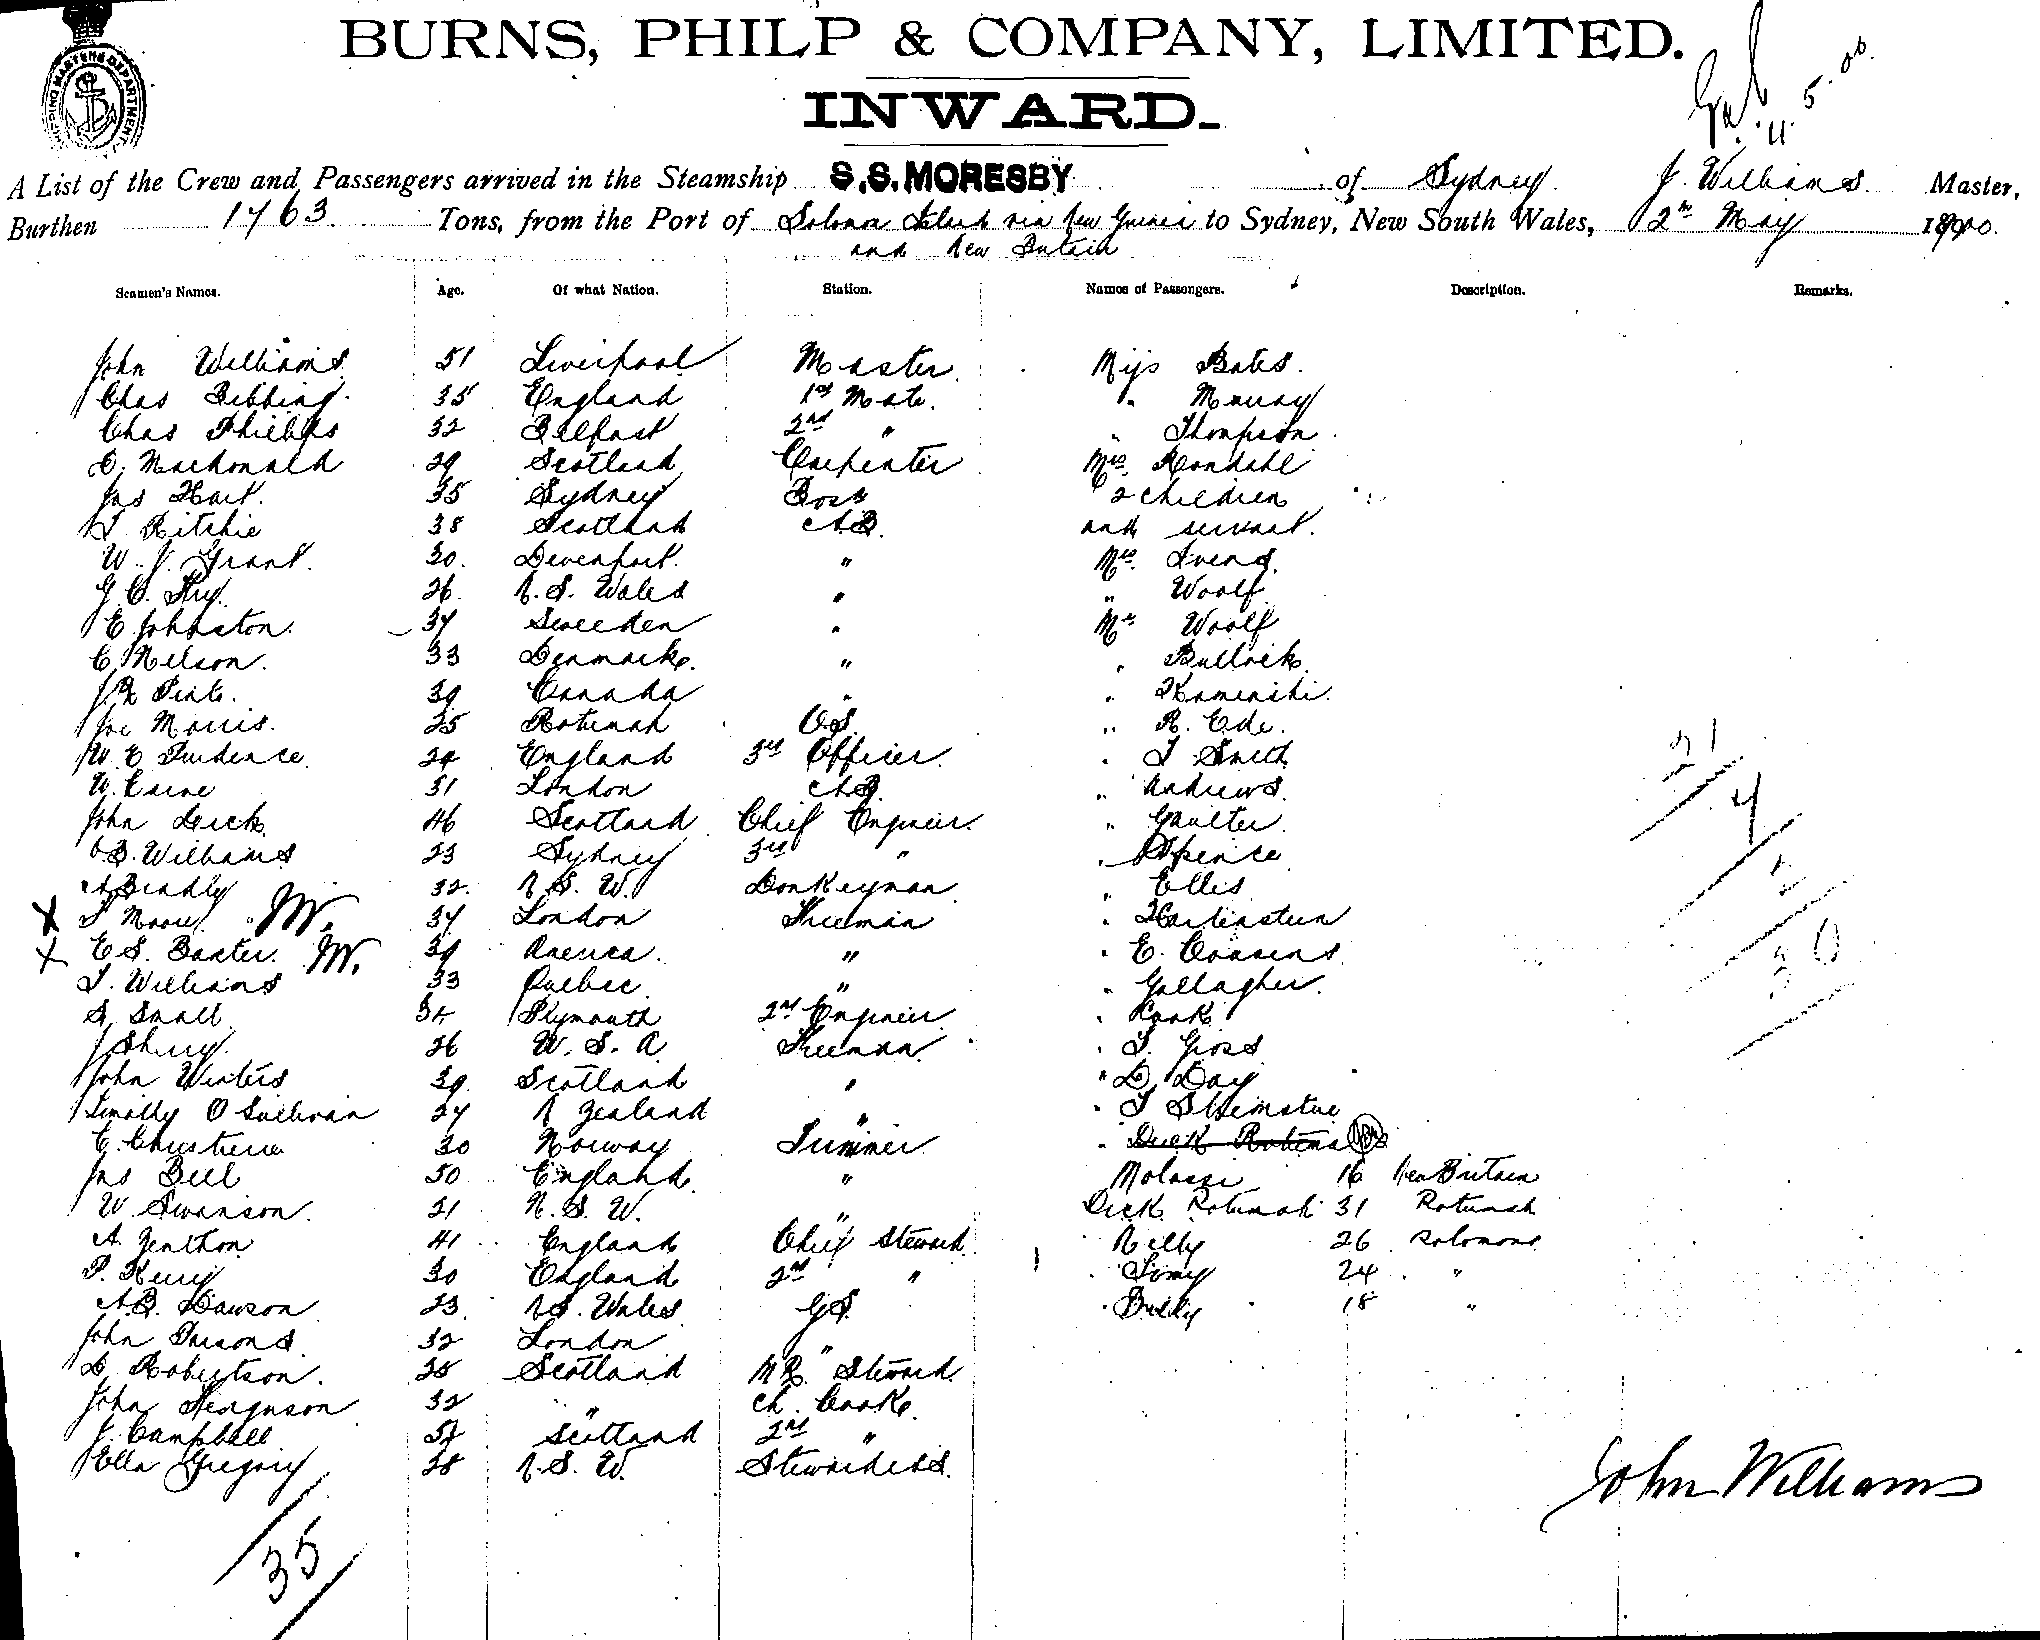 SHIPPING MASTERS DEPARTMENT
BURNS, PHILP & COMPANY, LIMITED.
INWARD.
11.5.00.
A List of the Crew and Passengers arrived in the Steamship S.S. MORESBY of Sydney J. Williams Master,
Burthen 1763 Tons, from the Port of Solomon Islands via New Guinea to Sydney, New South Wales, 2nd May 1900.
and New Britain
Seamen's Names. Age. Of what Nation. Station. Names of Passengers. Description. Remarks.
John Williams 51 Liverpool Master Miss Bates.
Chas Bibbing 35 England 1st Mate. " Murray
Chas Phillips 32 Belfast 2nd " " Thompson
D. Macdonald 29 Scotland Carpenter Mrs. Rondahl
Jas Hart. 35 Sydney Bosn 2 children
T Ritchie 38 Scotland A.B. and servant.
W. J. Grant. 30. Devenport. " Mrs. Ivens.
G. C. Fry. 26. N. S. Wales " " Woolf
E Johnston. 37 Sweeden " Mr Woolf
C. Nelson. 33 Denmark. " " Bullock
39 Canada " " Kaminski.
Joe Morris. 25 Rotumah O.S. " R. Ede.
W. E Prudence 29 England 3rd Officer. " T Smith
W. Carne 31 London A.B. " Andrews.
John Leck. 46 Scotland Chief Engineer. " Gaulter
B. Williams 23 Sydney 3rd " " Spence
A Bradly 32. N. S. W. Donkeyman " Ellis
X T Moore 37 London Fireman " Hartenstein
X E S. Baxter. 39 America. " " E. Cousens
T. Williams 33 Quebec. " " Gallagher.
S. Small 34 Plymouth 2nd Engineer " Cook
J Sherry. 26 U. S. A Fireman. " T. Gross
John Winters 39. Scotland " " D. Day
Timothy O Sullivan 27 N Zealand "
C. Christiene 30 Norway Trimmer " Dick Rotuma
Jas Bell 50 England. " 16 New Britain
W. Swanson. 21 N. S. W. " Dick Rotumah 31 Rotumah
A. Zenthon 41 England Chief Steward. Nelly 26 Solomons
P. Kerry 30 England 2nd " " Tomy 24 "
A.B. Dawson 23. N.S. Wales. G.S. " Billy 18 "
John Parsons. 32 London "
D. Robertson. 28 Scotland M.R. Steward.
John Ferguson 32 " Ch. Cook.
J. Campbell Scotland 2nd "
Ella Gregory 28 N. S. W. Stewardess.
21
4
2
30
John Williams
35